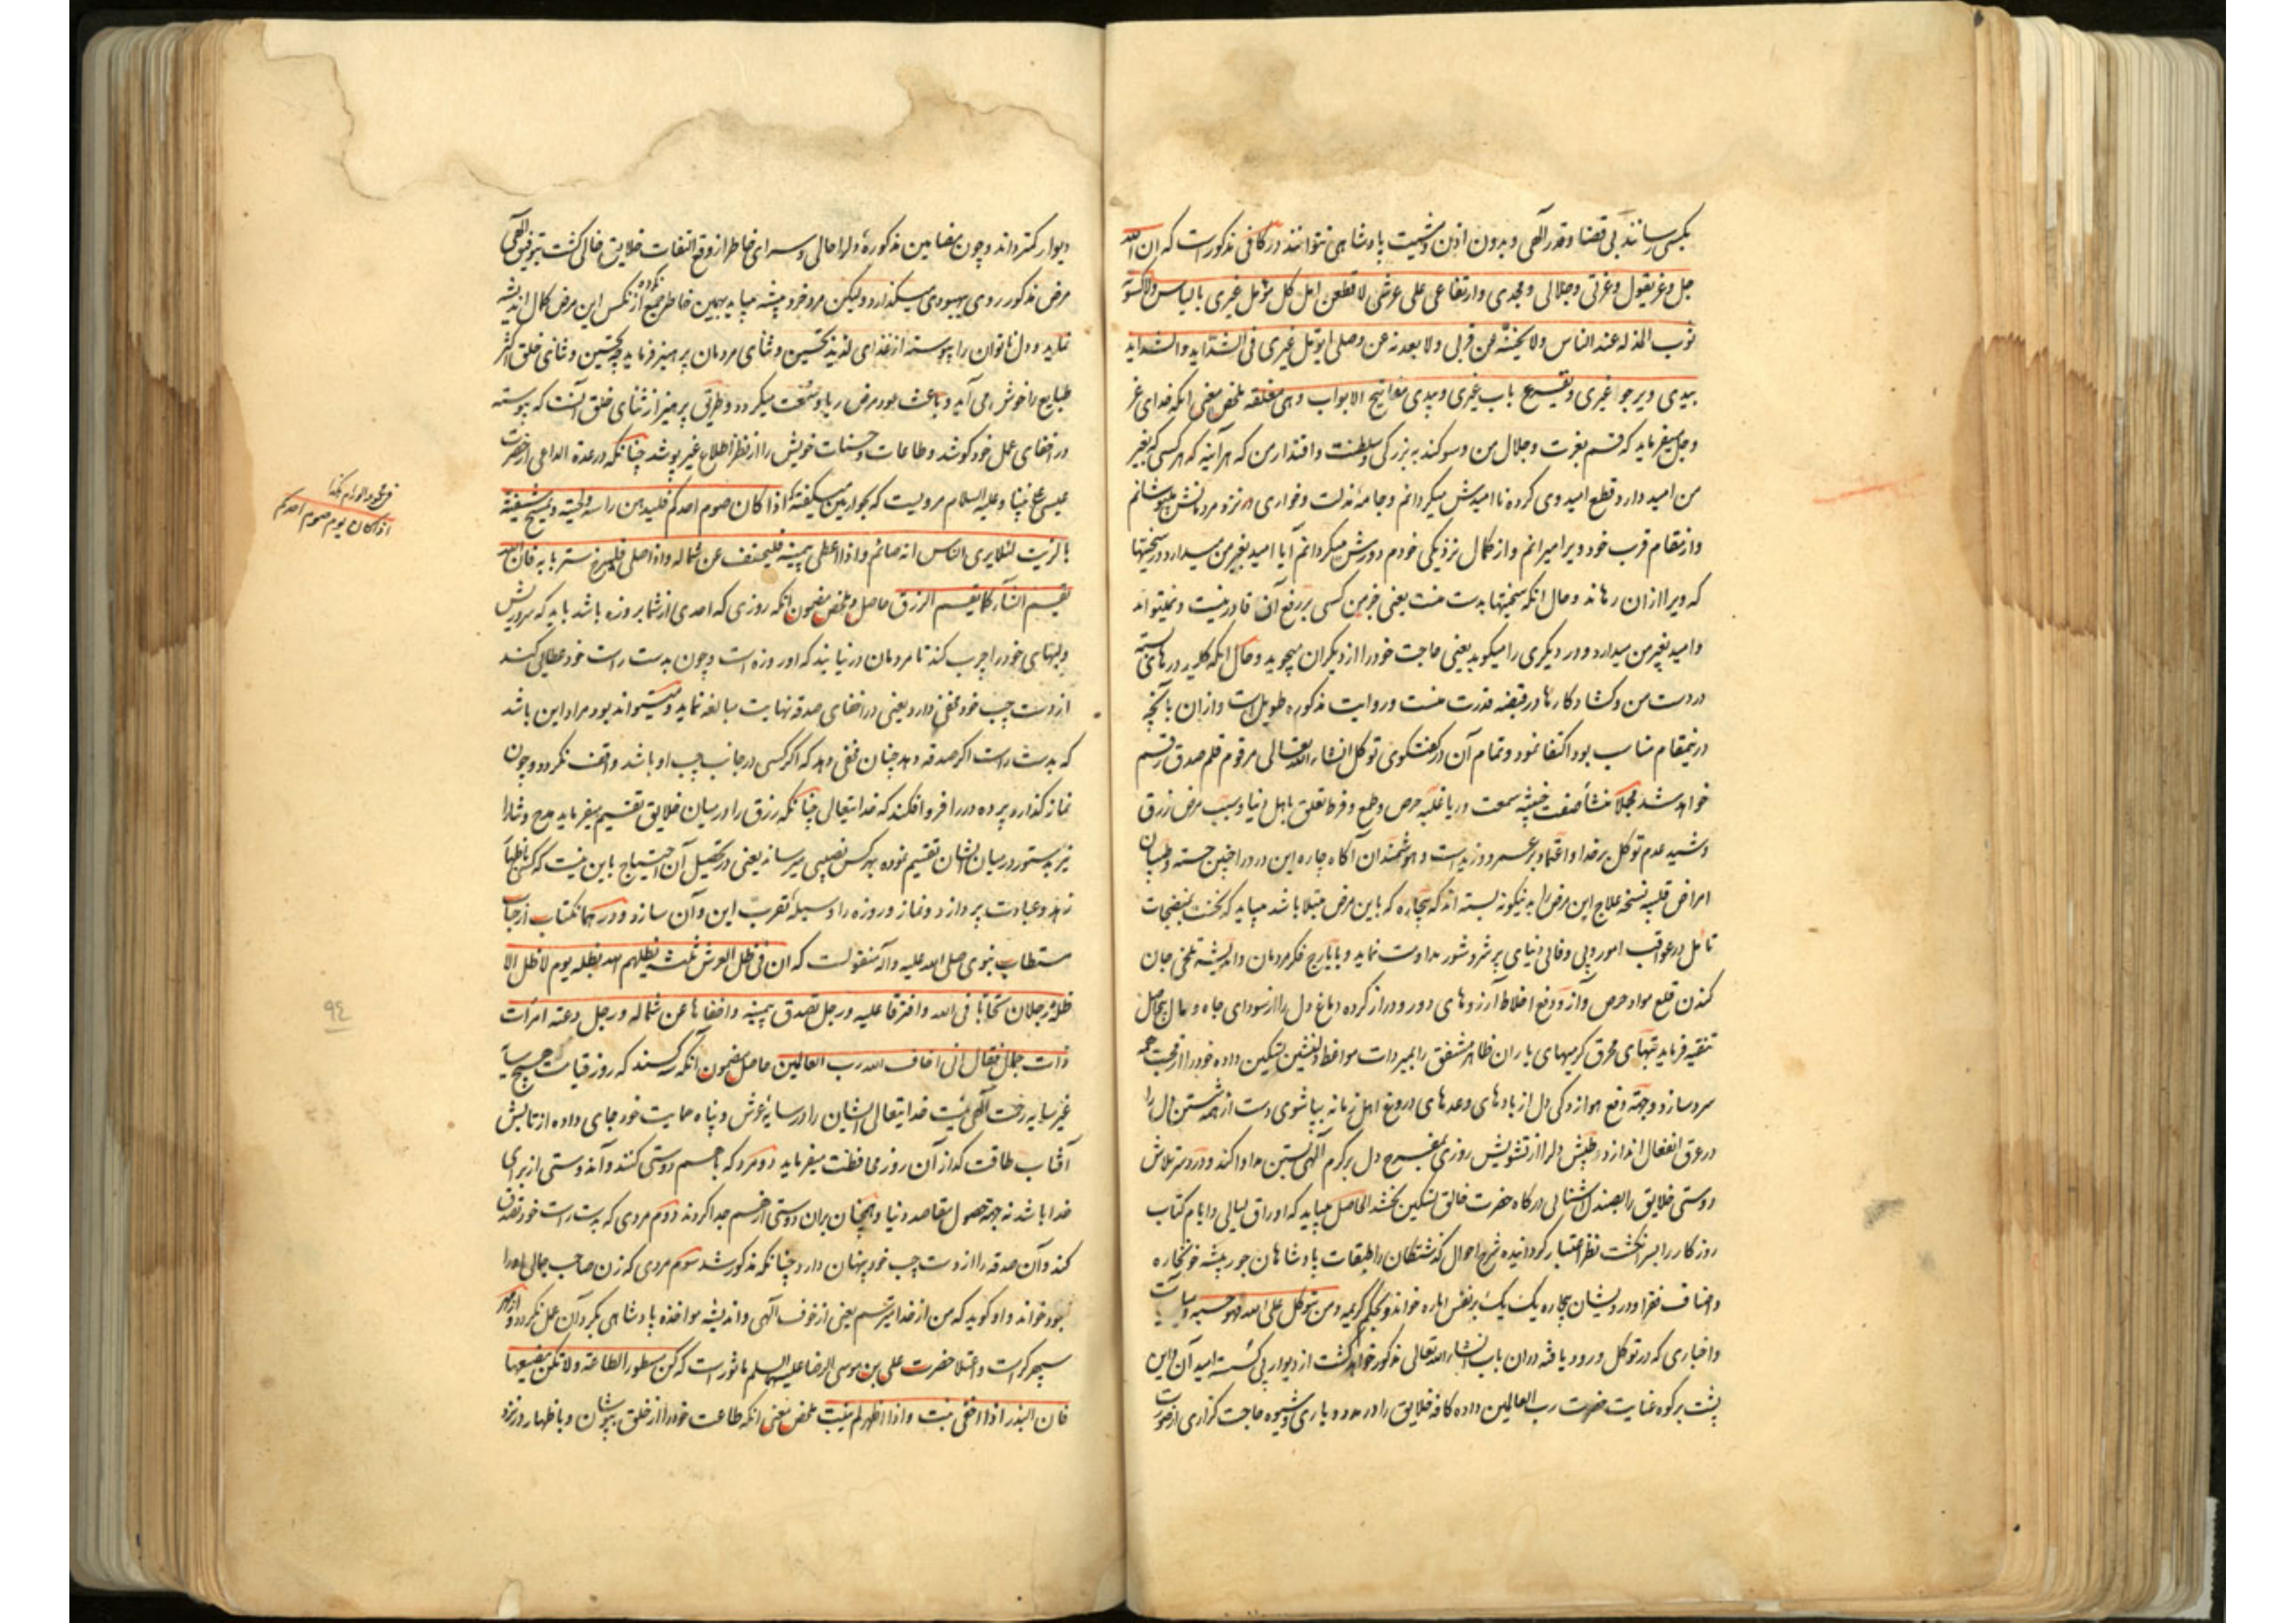 بکسی رسانند بی قضا و قدر آلهی و بدون اذن و مشیت پادشاهی نتوانند در کافی مذکور است که ان الله
جل و عز یقول و عزتی و جلالی و مجدی و ارتفاعی علی عرشی لاقطعن امل کل مؤمل غیری بالیاس و لاکسونه
ثوب المذلة عند الناس و لانحینه من قربی و لابعدنه من وصلی ایؤمل غیری فی الشداید و الشداید
بیدی و یرجوا غیری و یقرع باب غیری و بیدی مفاتیح الابواب و هی مغلقه ملخص معنی آنکه خدای عز
و جل میفرماید که قسم بعزت و جلال من و سوکند به بزرکی و سلطنت و اقتدار من که هر آینه که هر کسی که بغیر
من امید دارد قطع امید وی کرده ناامیدش میکردانم و جامهٔ مذلت و خواری در نزد مردمانش میپوشانم
و از مقام قرب خود ویرا میرانم و از کمال نزدیکی خودم دورش میکردانم آیا امید بغیر من میدارد در سختیها
که ویرا از ان رهاند و حال آنکه سختیها بدست منست یعنی غیر من کسی بر رفع آن قادر نیست و نمیتواند
و امید بغیر من میدارد و در دیکری را میکوبد یعنی حاجت خود را از دیکران میجوید و حال آنکه کلید درهای بسته
در دست من و کشاد کارها در قبضه قدرت منست و روایت مذکوره طویل است و از ان بآنچه
در نیمقام مناسب بود اکتفا نمود و تمام آن در کفتکوی توکل انشاء الله تعالی مرقوم قلم صدق رقم
خواهد شد مجملا منشأ صفت خبیثه سمعت و ریا غلبه حرص و طمع و فرط تعلق باهل دنیا و سبب مرض زرق
و شید عدم توکل بر خدا و اعتماد بر عمرو و زید است و هوشمندان آکاه چاره این درد را چنین جسته و طبیبان
امراض قلبیه نسخه علاج این مرض را بدینکونه بسته اند که بیچاره که باین مرض مبتلا باشد میباید که نخست بمنضجات
تامل در عواقب امور و بی وفائی دنیای پر شر و شور مداومت نماید و بایارج فکر مردمان و اندیشه تلخی جان
کندن قلع مواد حرص و آز و دفع اخلاط آرزوهای دور و دراز کرده دماغ دل را از سودای جاه و مال بیحاصل
تنقیه فرماید تبهای محرق کرمیهای یاران ظاهر مشفق را بمبردات مواعظ دلنشین تسکین داده خود را از محبت همه
سرد سازد و جهة دفع هوا زدکی دل از بادهای وعدهای دروغ اهل زمانه بپاشوی دست از همه شستن دل را
در عرق انفعال اندازد و طپش دل را از تشویش روزی بمفرح دل بر کرم آلهی بستن مداوا کند و درد سر تلاش
دوستی خلایق را بصندل اشنائی درکاه حضرت خالق تسکین بخشد الحاصل میباید که اوراق لیالی و ایام کتاب
روزکار را بسر انکشت نظر اعتبار کردانیده شرح احوال کذشتکان را طبقات پادشاهان جور پیشه خونخاره
و اصناف فقرا و درویشان بیچاره یک یک بر نفس اماره خواند و بحکم کریمه و من یتوکل علی الله فهو حسبه و سایر آیات
و اخباری که در توکل ورود یافته و در ان باب انشاء الله تعالی مذکور خواهد کشت از دیوار پی کسسته امید آن و این
پشت بر کوه عنایت حضرت رب العالمین داده کافه خلایق را در مدد و یاری و شیوه حاجت کزاری از صورت
دیوار کمتر داند و چون مضامین مذکوره دلرا حالی و سرای خاطر از وقع التفات خلایق خالی کشت بتوفیق آلهی
مرض مذکور روی ببهبودی میکذارد و لیکن مرد خرد پیشه میباید بهمین خاطر جمع نکرده از نکس این مرض کمال اندیشه
نماید و دل ناتوان را پیوسته از غذای لذیذ تحسین و ثنای مردمان پرهیز فرماید چه تحسین و ثنای خلق اکثر
طبایع را خوش می آید و باعث عود مرض ریا و سمعت میکردد و طریق پرهیز از ثنای خلق آنست که پیوسته
در اخفای عمل خود کوشد و طاعات و حسنات خویش را از نظر اطلاع غیر پوشد چنانکه در عدة الداعی از حضرت
عیسی علی نبینا و علیه السلام مرویست که بحواریین میکفته که اذا کان صوم احدکم فلیدهن راسه و لحیته و یمسح شفتیه
بالزیت لئلا یری الناس انه صائم و اذا اعطی بیمینه فلیخف عن شماله و اذا صلی فلیرخ ستر بابه فان الله
یقسم الثناء کما یقسم الرزق حاصل و ملخص مضمون آنکه روزی که احدی از شما بروزه باشد باید که سر و ریش
و لبهای خود را چرب کند تا مردمان در نیابند که او روزه است و چون بدست راست خود عطائی کند
از دست چپ خود مخفی دارد یعنی در اخفای صدقه نهایت مبالغه نماید و میتواند بود مراد این باشد
که بدست راست اکر صدقه دهد چنان مخفی دهد که اکر کسی در جانب چپ او باشد واقف نکردد و چون
نماز کذارد پرده در را فرو افکند که خدایتعالی چنانکه رزق را در میان خلایق تقسیم میفرماید مدح و ثنا را
نیز بدستور در میان ایشان تقسیم نموده بهر کس نصیبی میرساند یعنی در تحصیل آن احتیاج باین نیست که کسی باظهار
زهد و عبادت پردازد و نماز و روزه را وسیلهٔ تقرب این و آن سازد و در همان کتاب از جناب
مستطاب نبوی صلی الله علیه و آله منقولست که ان فی ظل العرش ثلثه یظلهم الله بظله یوم لا ظل الا
ظله رجلان تحابا فی الله و افترقا علیه و رجل تصدق بیمینه و اخفاها عن شماله و رجل دعته امرأت
ذات جمال فقال انی اخاف الله رب العالمین حاصل مضمون آنکه سه کسند که روز قیامت که هیچ سایه
غیر سایه رحمت آلهی نیست خدایتعالی ایشان را در سایهٔ عرش و پناه حمایت خود جای داده از تابش
آفتاب طاقت کداز آن روز محافظت میفرماید دو مرد که با هم دوستی کنند و آن دوستی از برای
خدا باشد نه جهة حصول مقاصد دنیا و همچنان بران دوستی از هم جدا کردند دوم مردی که بدست راست خود تصدق
کند و آن صدقه را از دست چپ خود پنهان دارد چنانکه مذکور شد سوم مردی که زن صاحب جمالی او را
بخود خواند و او کوید که من از خدا میترسم یعنی از خوف آلهی و اندیشه مواخذه پادشاهی بکرد آن عمل نکردد و از مهر
سپهر کرامت و اعتلا حضرت علی بن موسی الرضا علیهما السلم ماثور است که کن مسطور الطاعة و لا تکن مضیعها
فان البذر اذا اخفی نبت و اذا اظهر لم ینبت ملخص معنی آنکه طاعت خود را از خلق بپوشان و باظهار در نزد
اذا کان یوم صوم احدکم
۹۴